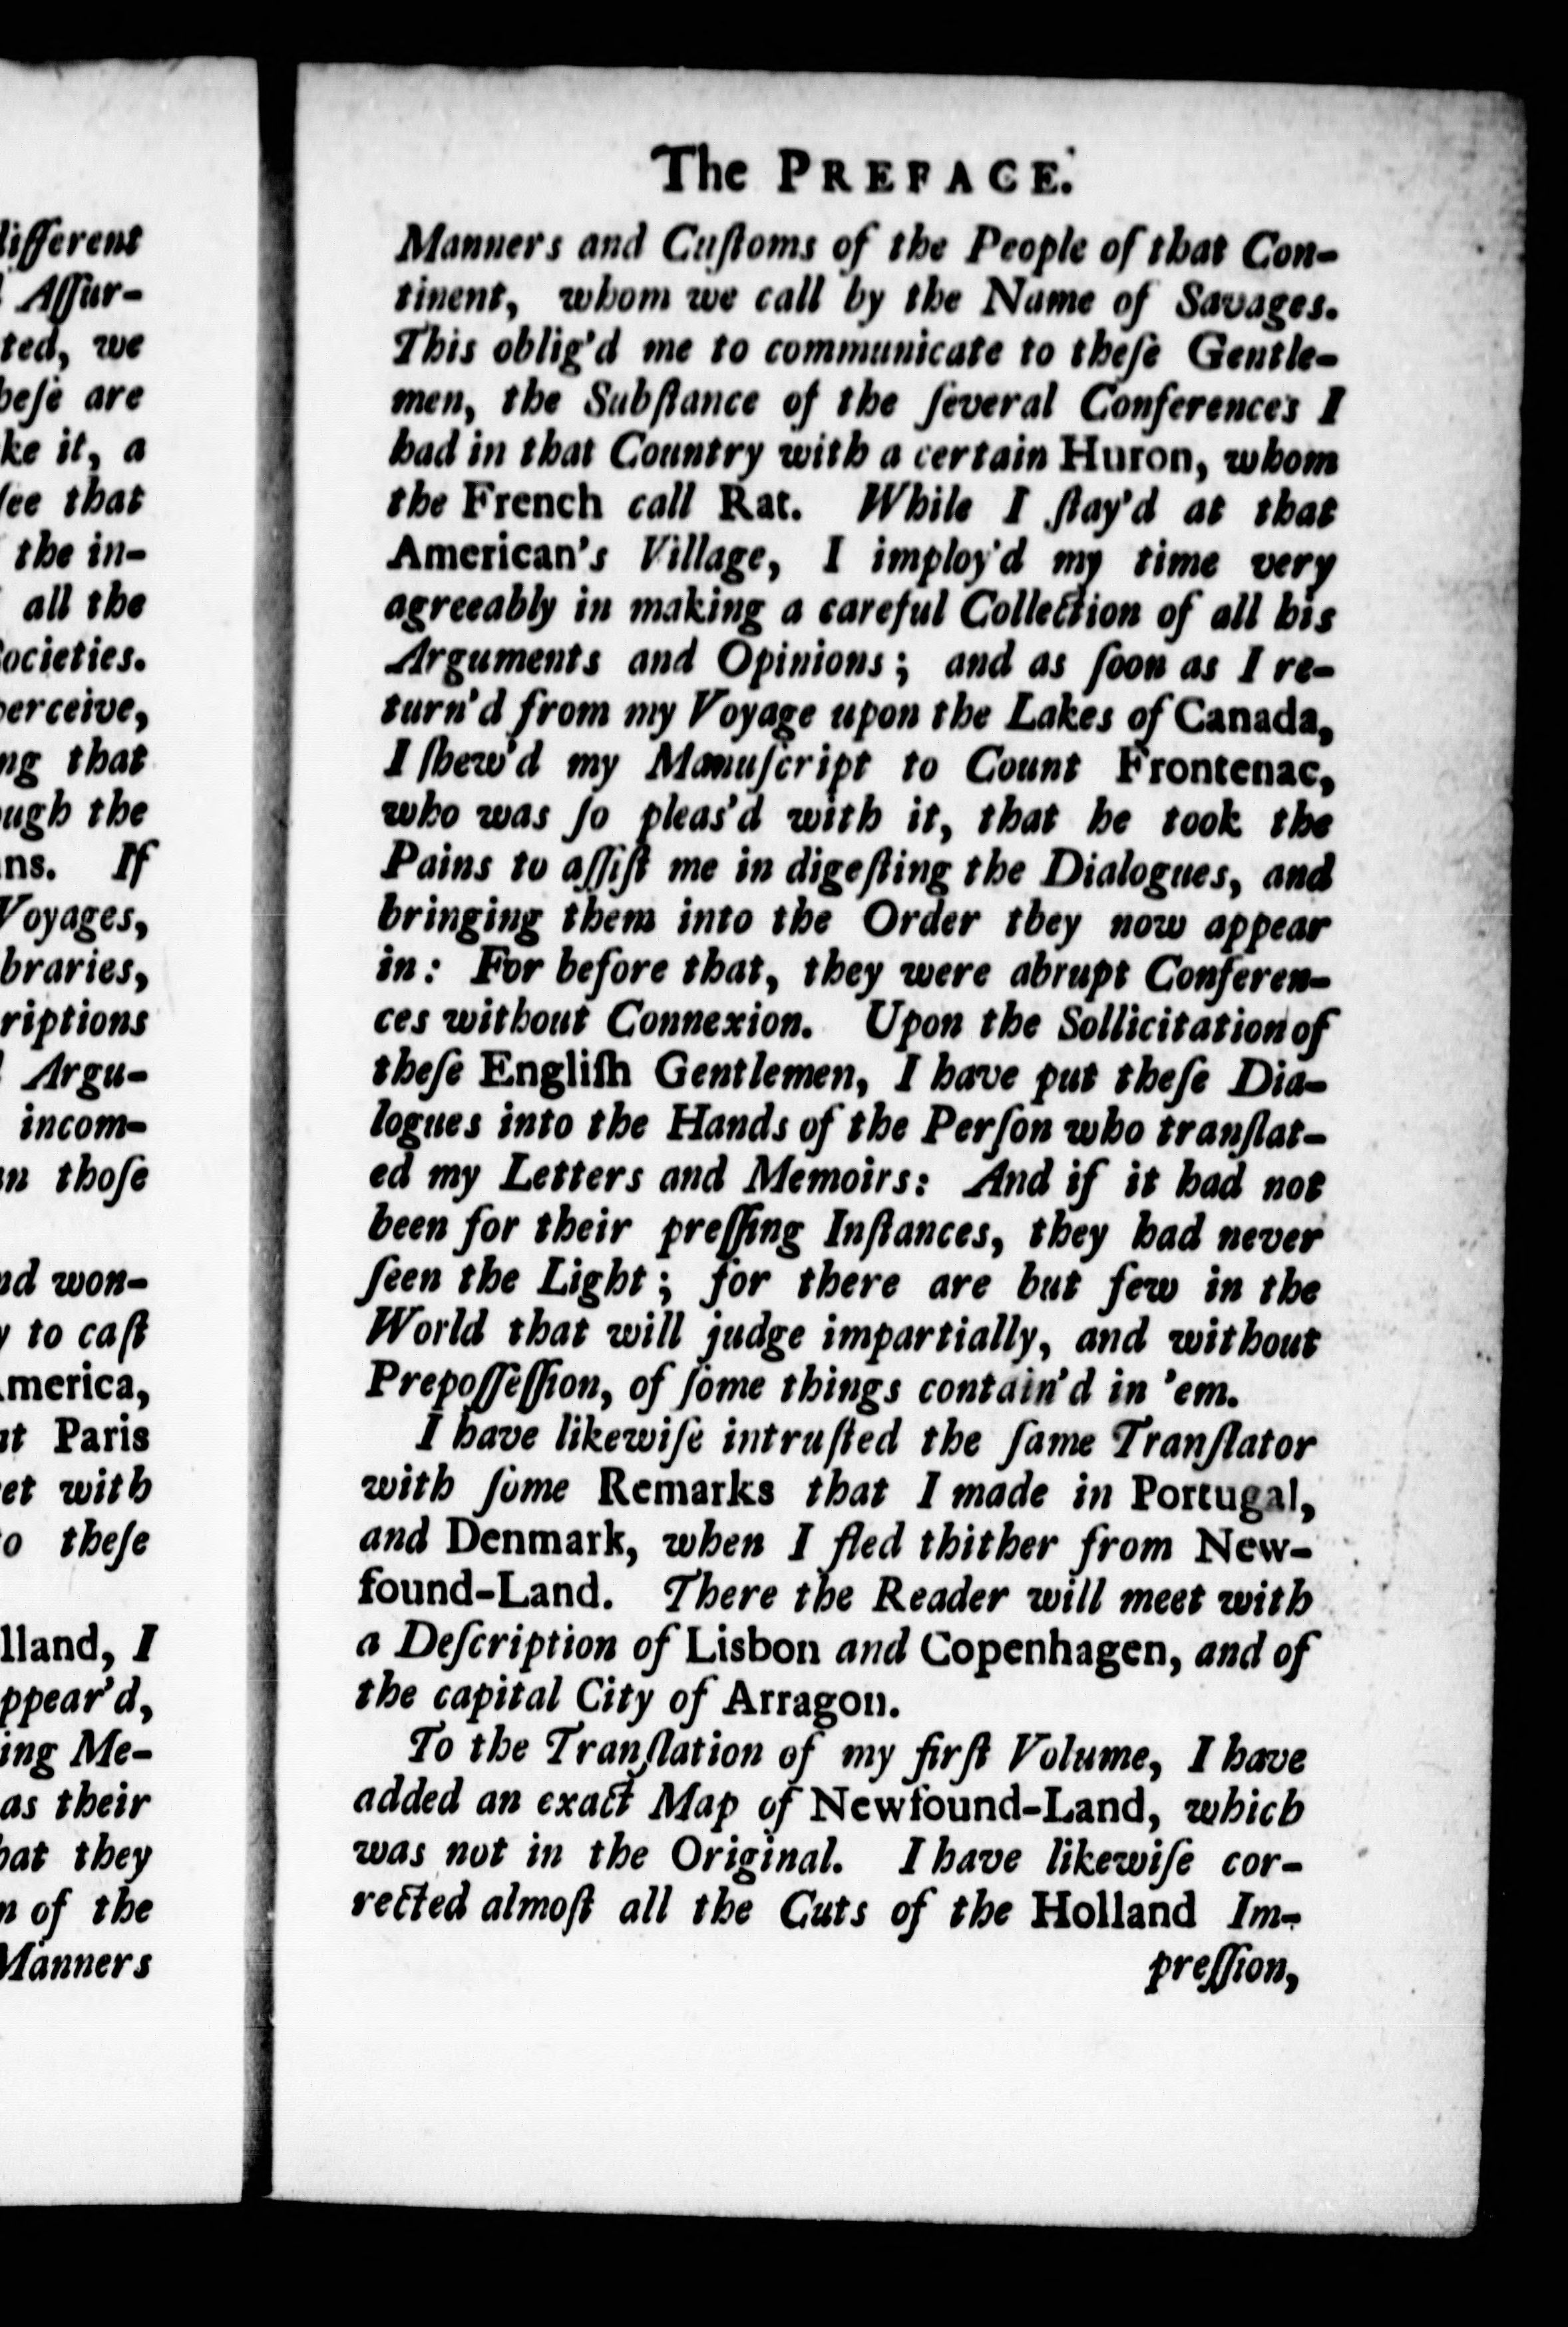 ifferent
Aſſur-
ted, we
beſe are
ke it, a
ſee that
the in-
all the
ocieties.
erceive,
ng that
ugh the
ns. If
Voyages,
braries,
riptions
Argu-
incom-
n thoſe
nd won-
y to caſt
merica,
at Paris
et with
o theſe
lland, I
ppear'd,
ing Me-
as their
hat they
n of the
Manners
The PREFACE.
Manners and Cuſtoms of the People of that Con-
tinent, whom we call by the Name of Savages.
This oblig'd me to communicate to theſe Gentle-
men, the Subſtance of the ſeveral Conferences I
had in that Country with a certain Huron, whom
the French call Rat. While I ſtay'd at that
American's Village, I imploy'd my time very
agreeably in making a careful Collection of all his
Arguments and Opinions; and as ſoon as I re-
turn'd from my Voyage upon the Lakes of Canada,
I ſhew'd my Manuſcript to Count Frontenac,
who was ſo pleas'd with it, that he took the
Pains to aſſiſt me in digeſting the Dialogues, and
bringing them into the Order they now appear
in: For before that, they were abrupt Conferen-
ces without Connexion. Upon the Sollicitation of
theſe Engliſh Gentlemen, I have put theſe Dia-
logues into the Hands of the Perſon who tranſlat-
ed my Letters and Memoirs: And if it had not
been for their preſſing Inſtances, they had never
ſeen the Light; for there are but few in the
World that will judge impartially, and without
Prepoſſeſſion, of ſome things contain'd in 'em.
I have likewiſe intruſted the ſame Tranſlator
with ſome Remarks that I made in Portugal,
and Denmark, when I fled thither from New-
found-Land. There the Reader will meet with
a Deſcription of Lisbon and Copenhagen, and of
the capital City of Arragon.
To the Tranſlation of my firſt Volume, I have
added an exact Map of Newfound-Land, which
was not in the Original. I have likewiſe cor-
rected almoſt all the Cuts of the Holland Im-
preſſion,